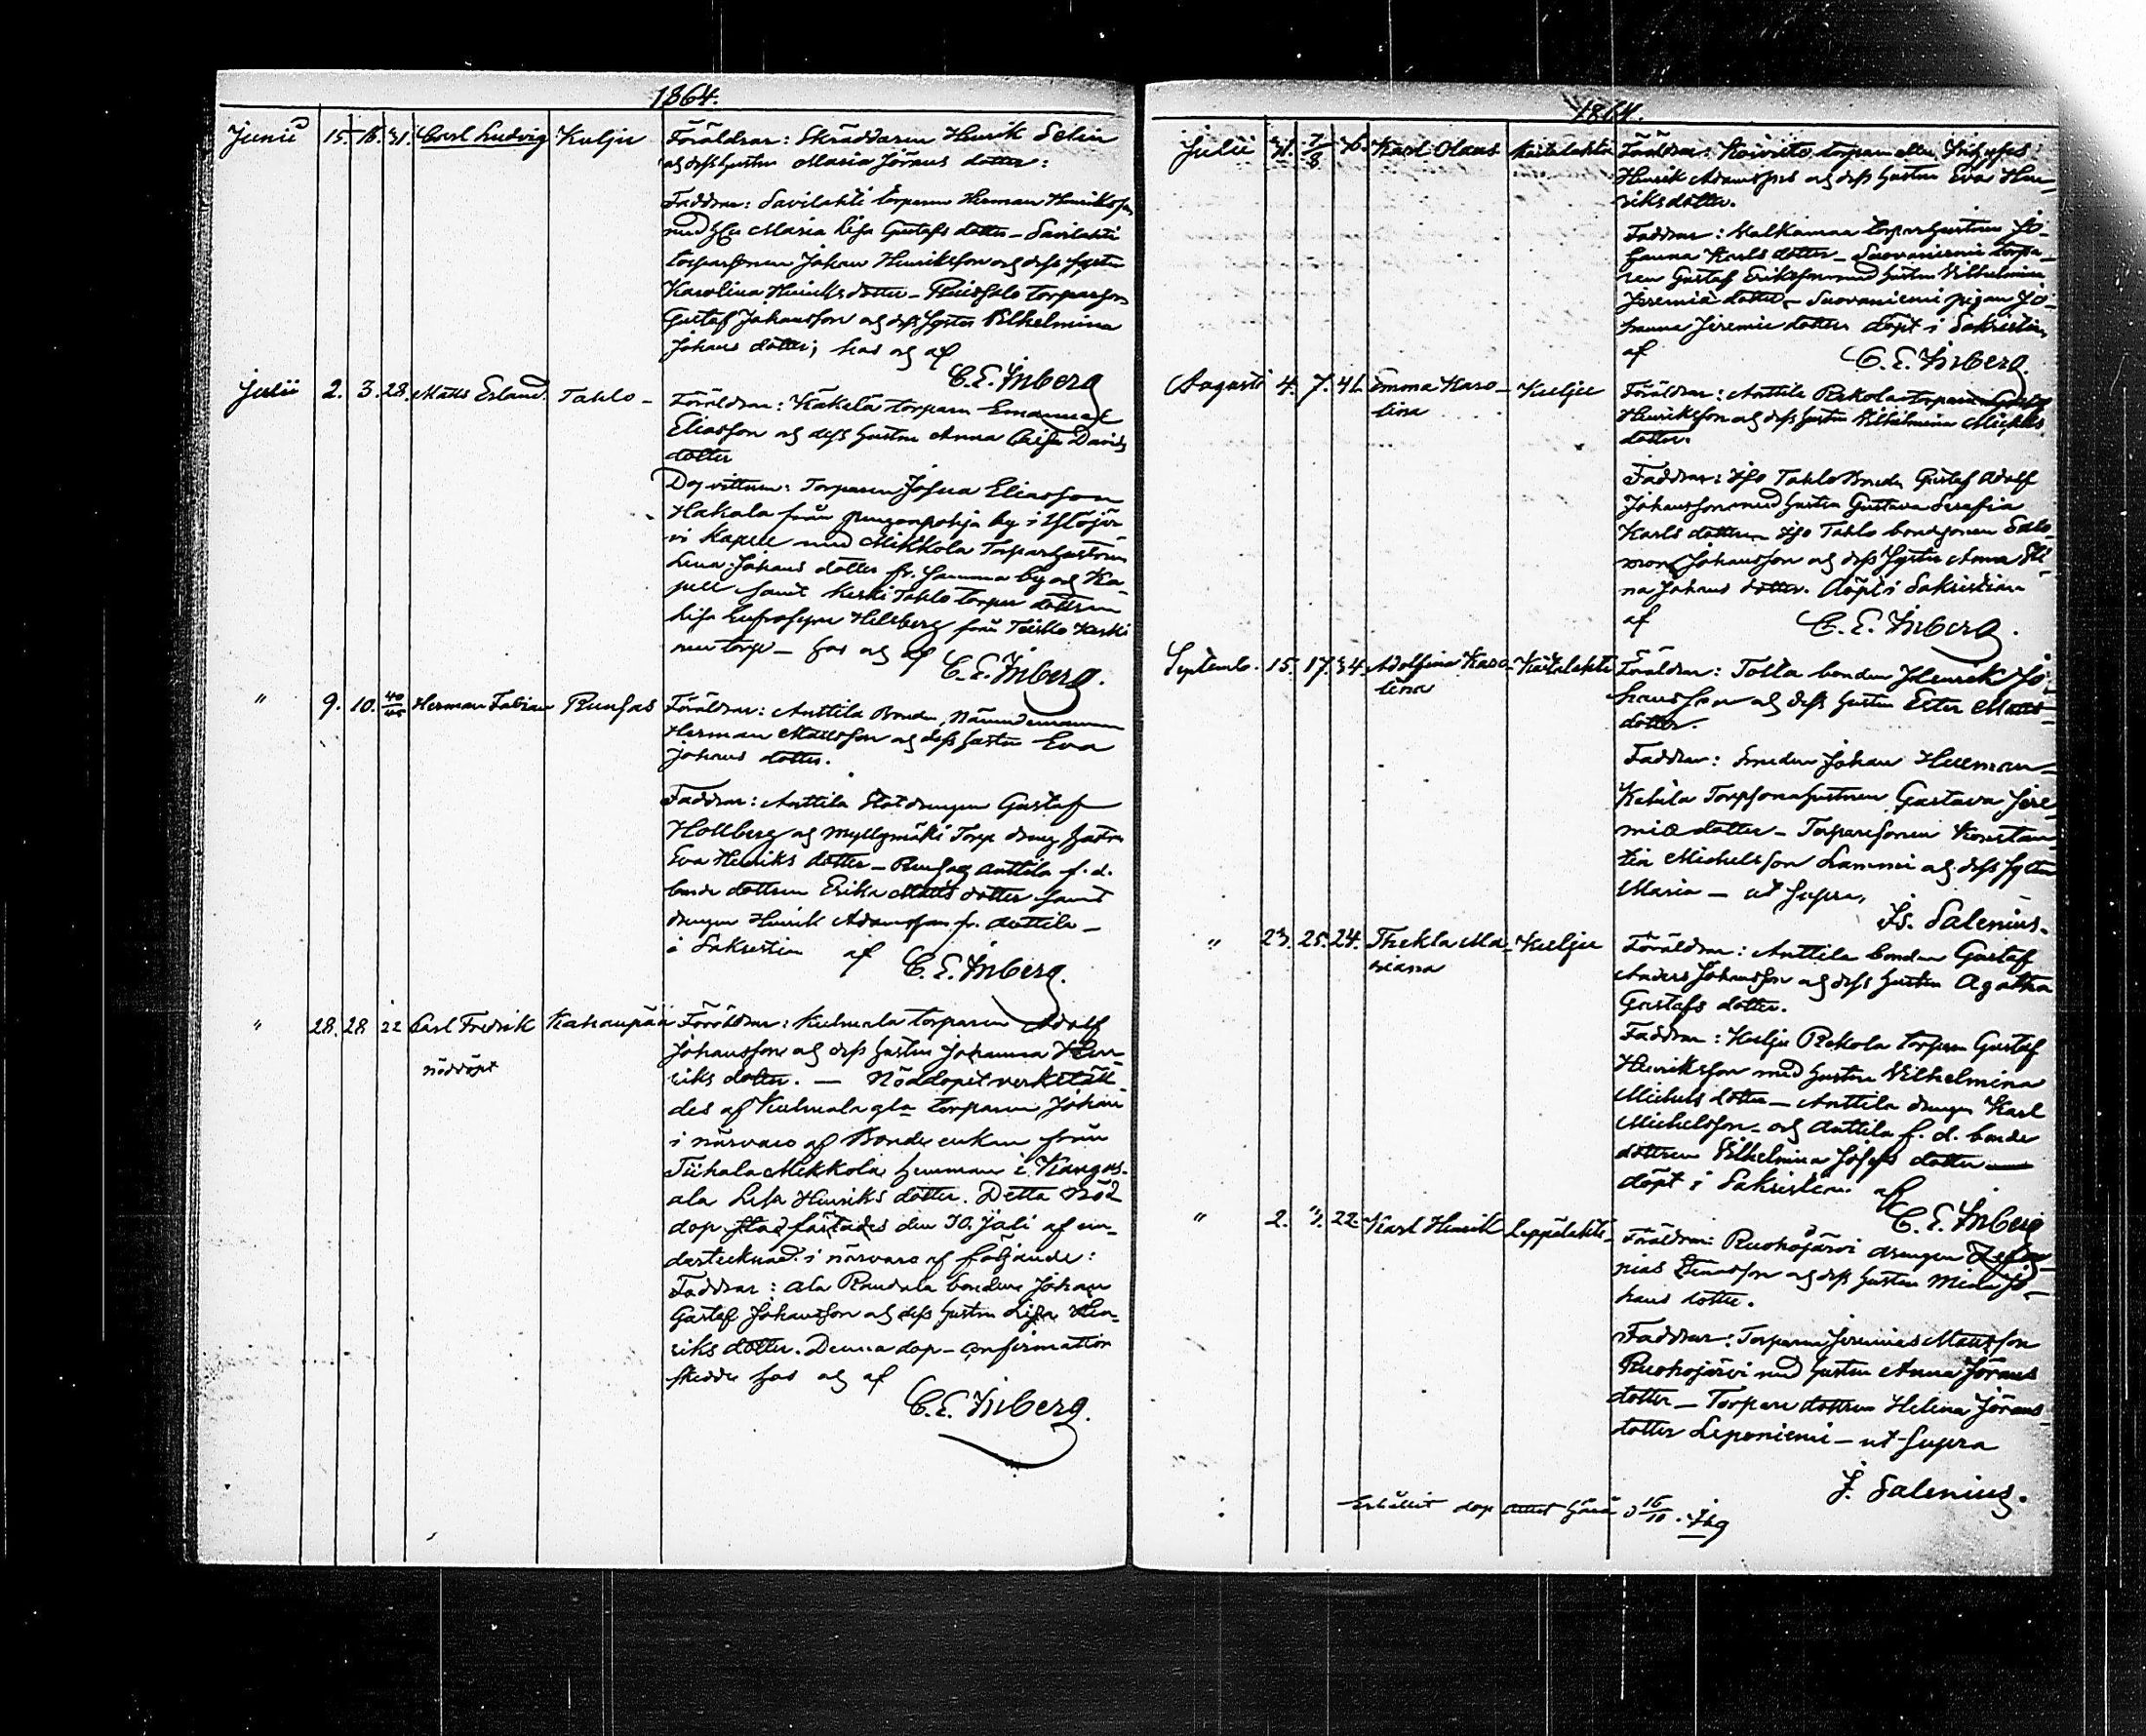 1864.
Junii 15. 16. 31. Carl Ludvig Kulju Föräldrar: Skräddaren Henrik Selin
och dess hustru Maria Jörans dotter:
Faddrar: Savilahti torparen Herman Henriksson
med Maria Lisa Gustafs dotter – Savilahti
torparsonen Johan Henriksson och dess syster
Karolina Henriks dotter – torparson
Gustaf Johansson och dess syster Vilhelmina
Johans dotter; hos och af
C. E. Inberg
Julii 2. 3. 28. Matts Erland. Tahlo – Föräldrar: Käkelä torparn Emanuel
Eliasson och dess hustru Anna Caisa Davids
dotter
Dopvittnen: Torparen Josua Eliasson
Hakala från by i Ylöjär-
vi Kapell med Mikkola Torparhustrun
Lena Johans dotter fr. by och Ka-
pell samt Keski Tahlo torpar dottren
Lisa Hellberg från Teisko Keski
torp – hos och af
C. E. Inberg.
" 9. 10. 40/45 Herman Fabian Runsas Föräldrar: Anttila Bonden, Nämndemannen
Herman Mattsson och dess hustru Eva
Johans dotter.
Faddrar: Anttila Statdrengen Gustaf
Hollberg och Myllymäki Torp dreng hustru
Eva Henriks dotter – Runsas Anttila f. d.
bonde dottren Erika Matts dotter samt
drengen Henrik Adamsson fr. Anttila –
i Sakristian af C. E. Inberg.
" 28. 28 22 Carl Fredrik Kahanpää Föräldrar: Kulmala torparen Adolf
nöddöpt
Johansson och dess hustru Johanna Hen-
riks dotter. – Nöddopet verkstäl-
des af Kulmala gla torparen Johan
i närvaro af Bonde enkan från
Tiihala Mikkola hemman i Kangas-
ala Lisa Henriks dotter. Detta Nöd
dop stadfästades den 30. Juli af un-
dertecknad i närvaro af följande:
Faddrar: Ala Randala bonden Johan
Gustaf Johansson och dess hustru Lisa Hen-
riks dotter. Denna dop-confirmation
skedde hos och af
C. E. Inberg.
1864.
Julii 31. 7/8 36. Karl Olaus Kaitalahti Föräldrar: Koivisto torparn eller Inhyses
Henrik Adamsson och dess hustru Eva Hen-
riks dotter.
Faddrar: Valkamaa torparhustrun Jo-
hanna Karls dotter – Suovaniemi torpa-
ren Gustaf Eriksson med hustru Vilhelmina
Jeremiæ dotter – Suovaniemi pigan Jo-
hanna Jeremiæ dotter döpt i Sakristian
af C. E. Inberg.
Augusti 4. 7. 41. Emma Karo- Kulju Föräldrar: Anttila Rekola torparen Gustaf
lina
Henriksson och dess hustru Vilhelmina Michels
dotter.
Faddrar: Iso Tahlo Bonden Gustaf Adolf
Johansson med hustru Gustava Serafia
Karls dotter – Iso Tahlo bondsonen Salo-
mon Johansson och dess syster Anna Sti-
na Johans dotter. Döpt i Sakristian
af C. E. Inberg.
Septemb. 15. 17. 34. Adolfina Karo- Kaitalahti Föräldrar: Tolla bonden Henrik Jo-
lina
hansson och dess hustru Ester Matts
dotter.
Faddrar: Smeden Johan Heerman –
Ketula Torpsonshustrun Gustava Jere-
miæ dotter – Torparesonen Konstan-
tin Michelsson Lammi och dess syster
Maria – ut supra,
Js. Salenius.
" 23. 25. 24. Thekla Ma- Kulju Föräldrar: Anttila bonden Gustaf
riana
Anders Johansson och dess hustru Agatha
Gustafs dotter.
Faddrar: Kulju Rekola torparn Gustaf
Henriksson med hustru Vilhelmina
Michels dotter – Anttila drengen Karl
Michelsson och Anttila f. d. bonde
dottren Vilhelmina Josefs dotter
döpt i Sakristian af
C. E. Inberg
" 2. 3. 22. Karl Henrik Leppälahti – Föräldrar: Ruohojärvi drengen Zefa-
nias Enoksson och dess hustru Miena Jo-
hans dotter.
Faddrar: Torparen Jeremias Mattsson
Ruohojärvi med hustru Anna Jörans
dotter – Torpare dottren Helena Jörans
dotter Leponiemi – ut supra
J. Salenius.
Erhållit dop härå d 16/10.